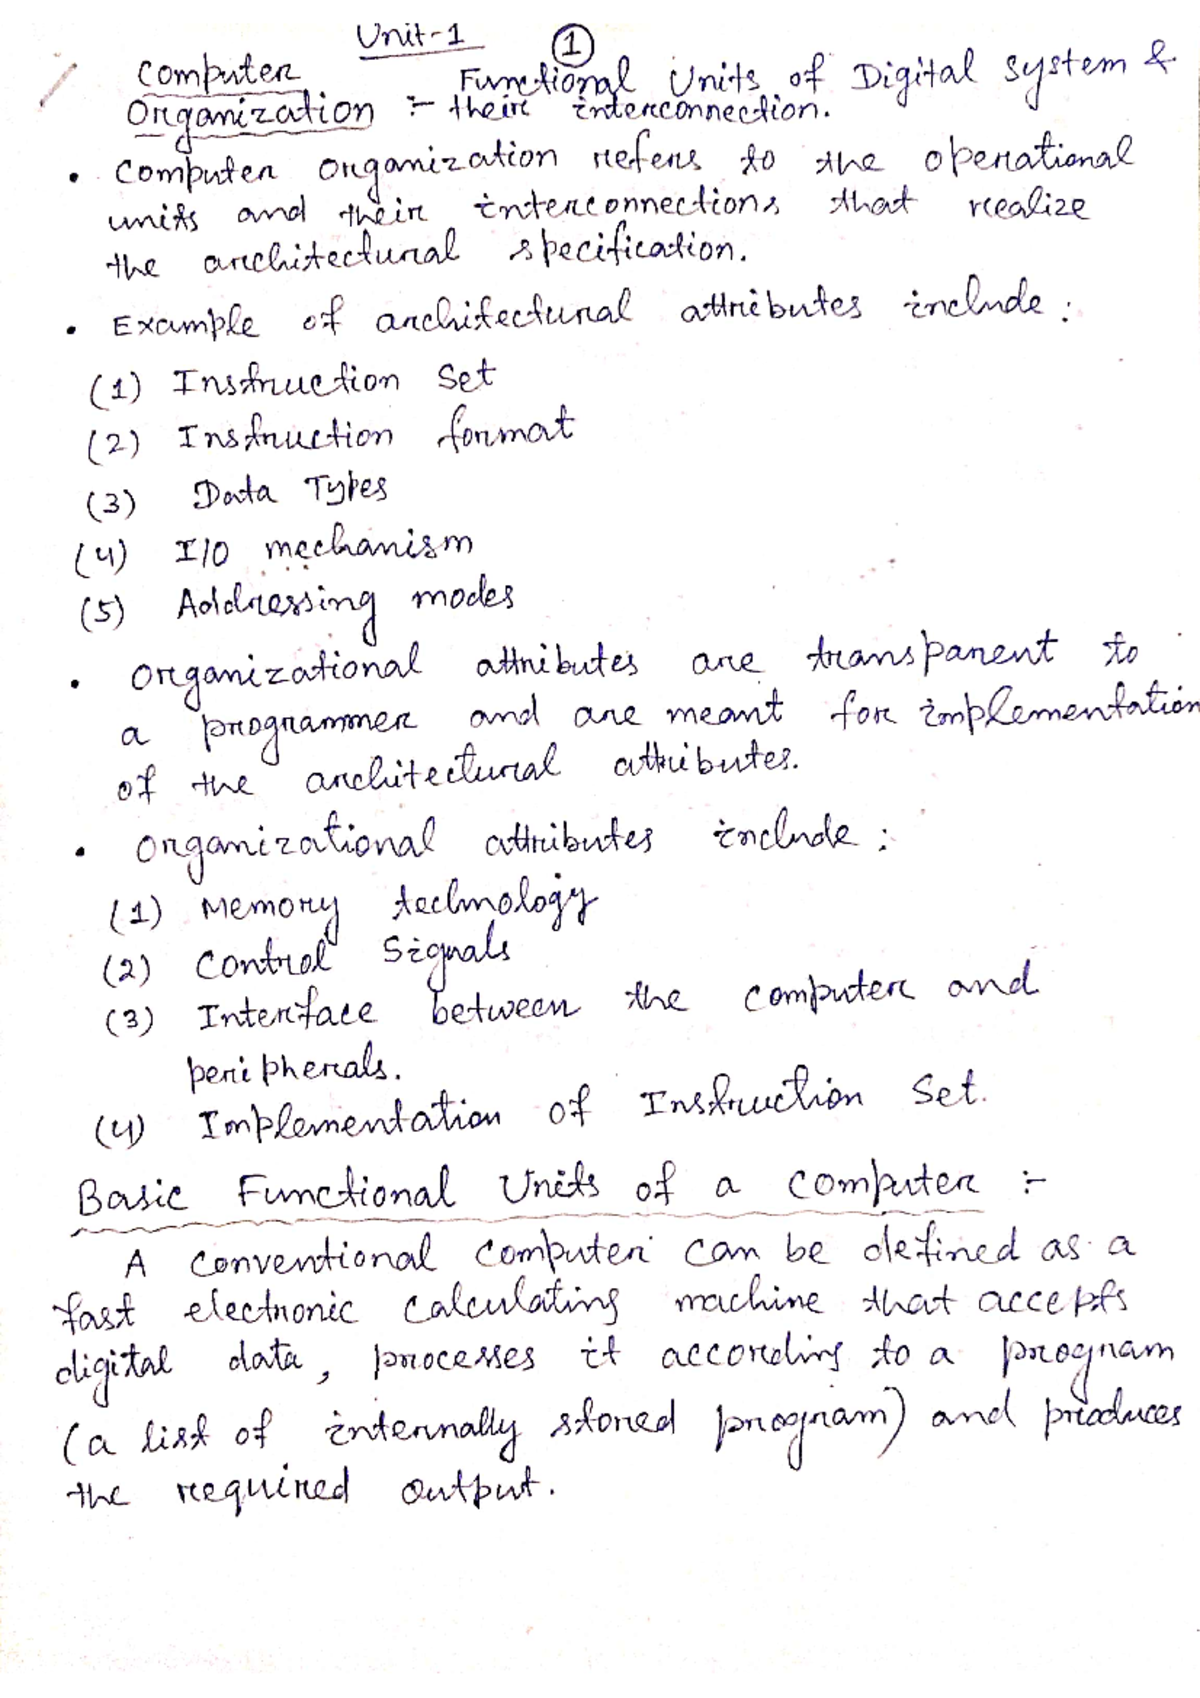 Unit-1
1
Computer Functional Units of Digital system &
Organization :- their interconnection.
• Computer organization refers to the operational
units and their interconnections that realize
the architectural specification.
• Example of architectural attributes include :
(1) Instruction Set
(2) Instruction format
(3) Data Types
(4) I/O mechanism
(5) Addressing modes
• Organizational attributes are transparent to
a programmer and are meant for implementation
of the architectural attributes.
• Organizational attributes include :
(1) Memory technology
(2) Control Signals
(3) Interface between the computer and
peripherals.
(4) Implementation of Instruction Set.
Basic Functional Units of a computer :-
A conventional computer can be defined as a
fast electronic calculating machine that accepts
digital data, processes it according to a program
(a list of internally stored program) and produces
the required output.